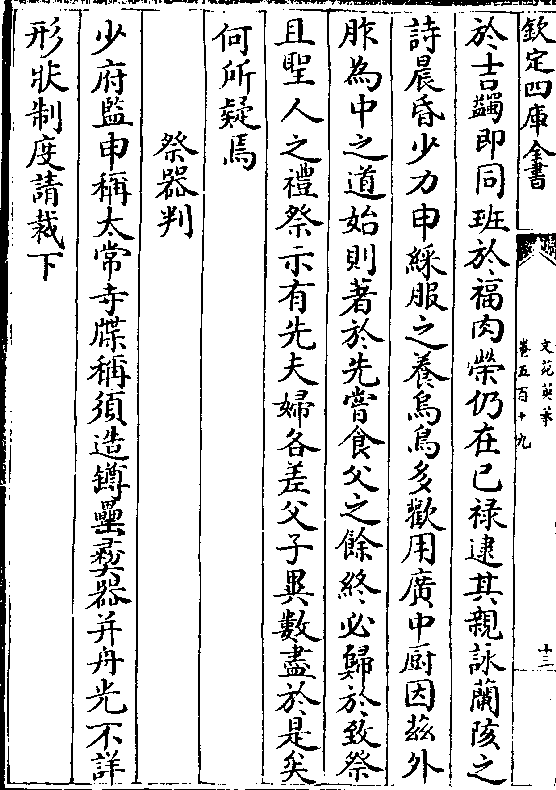 欽定四庫全書
文苑英華
卷五百十九
十三
於吉蠲即同班於福肉榮仍在已禄逮其親詠蘭陔之
詩晨昏少力申綵服之養烏鳥多歡用廣中厨因兹外
胙為中之道始則著於先嘗食父之餘終必歸於致祭
且聖人之禮祭示有先夫婦各差父子異數盡於是矣
何所疑焉
祭器判
少府監申稱太常寺牒稱須造罇罍彛器并舟光不詳
形狀制度請裁下